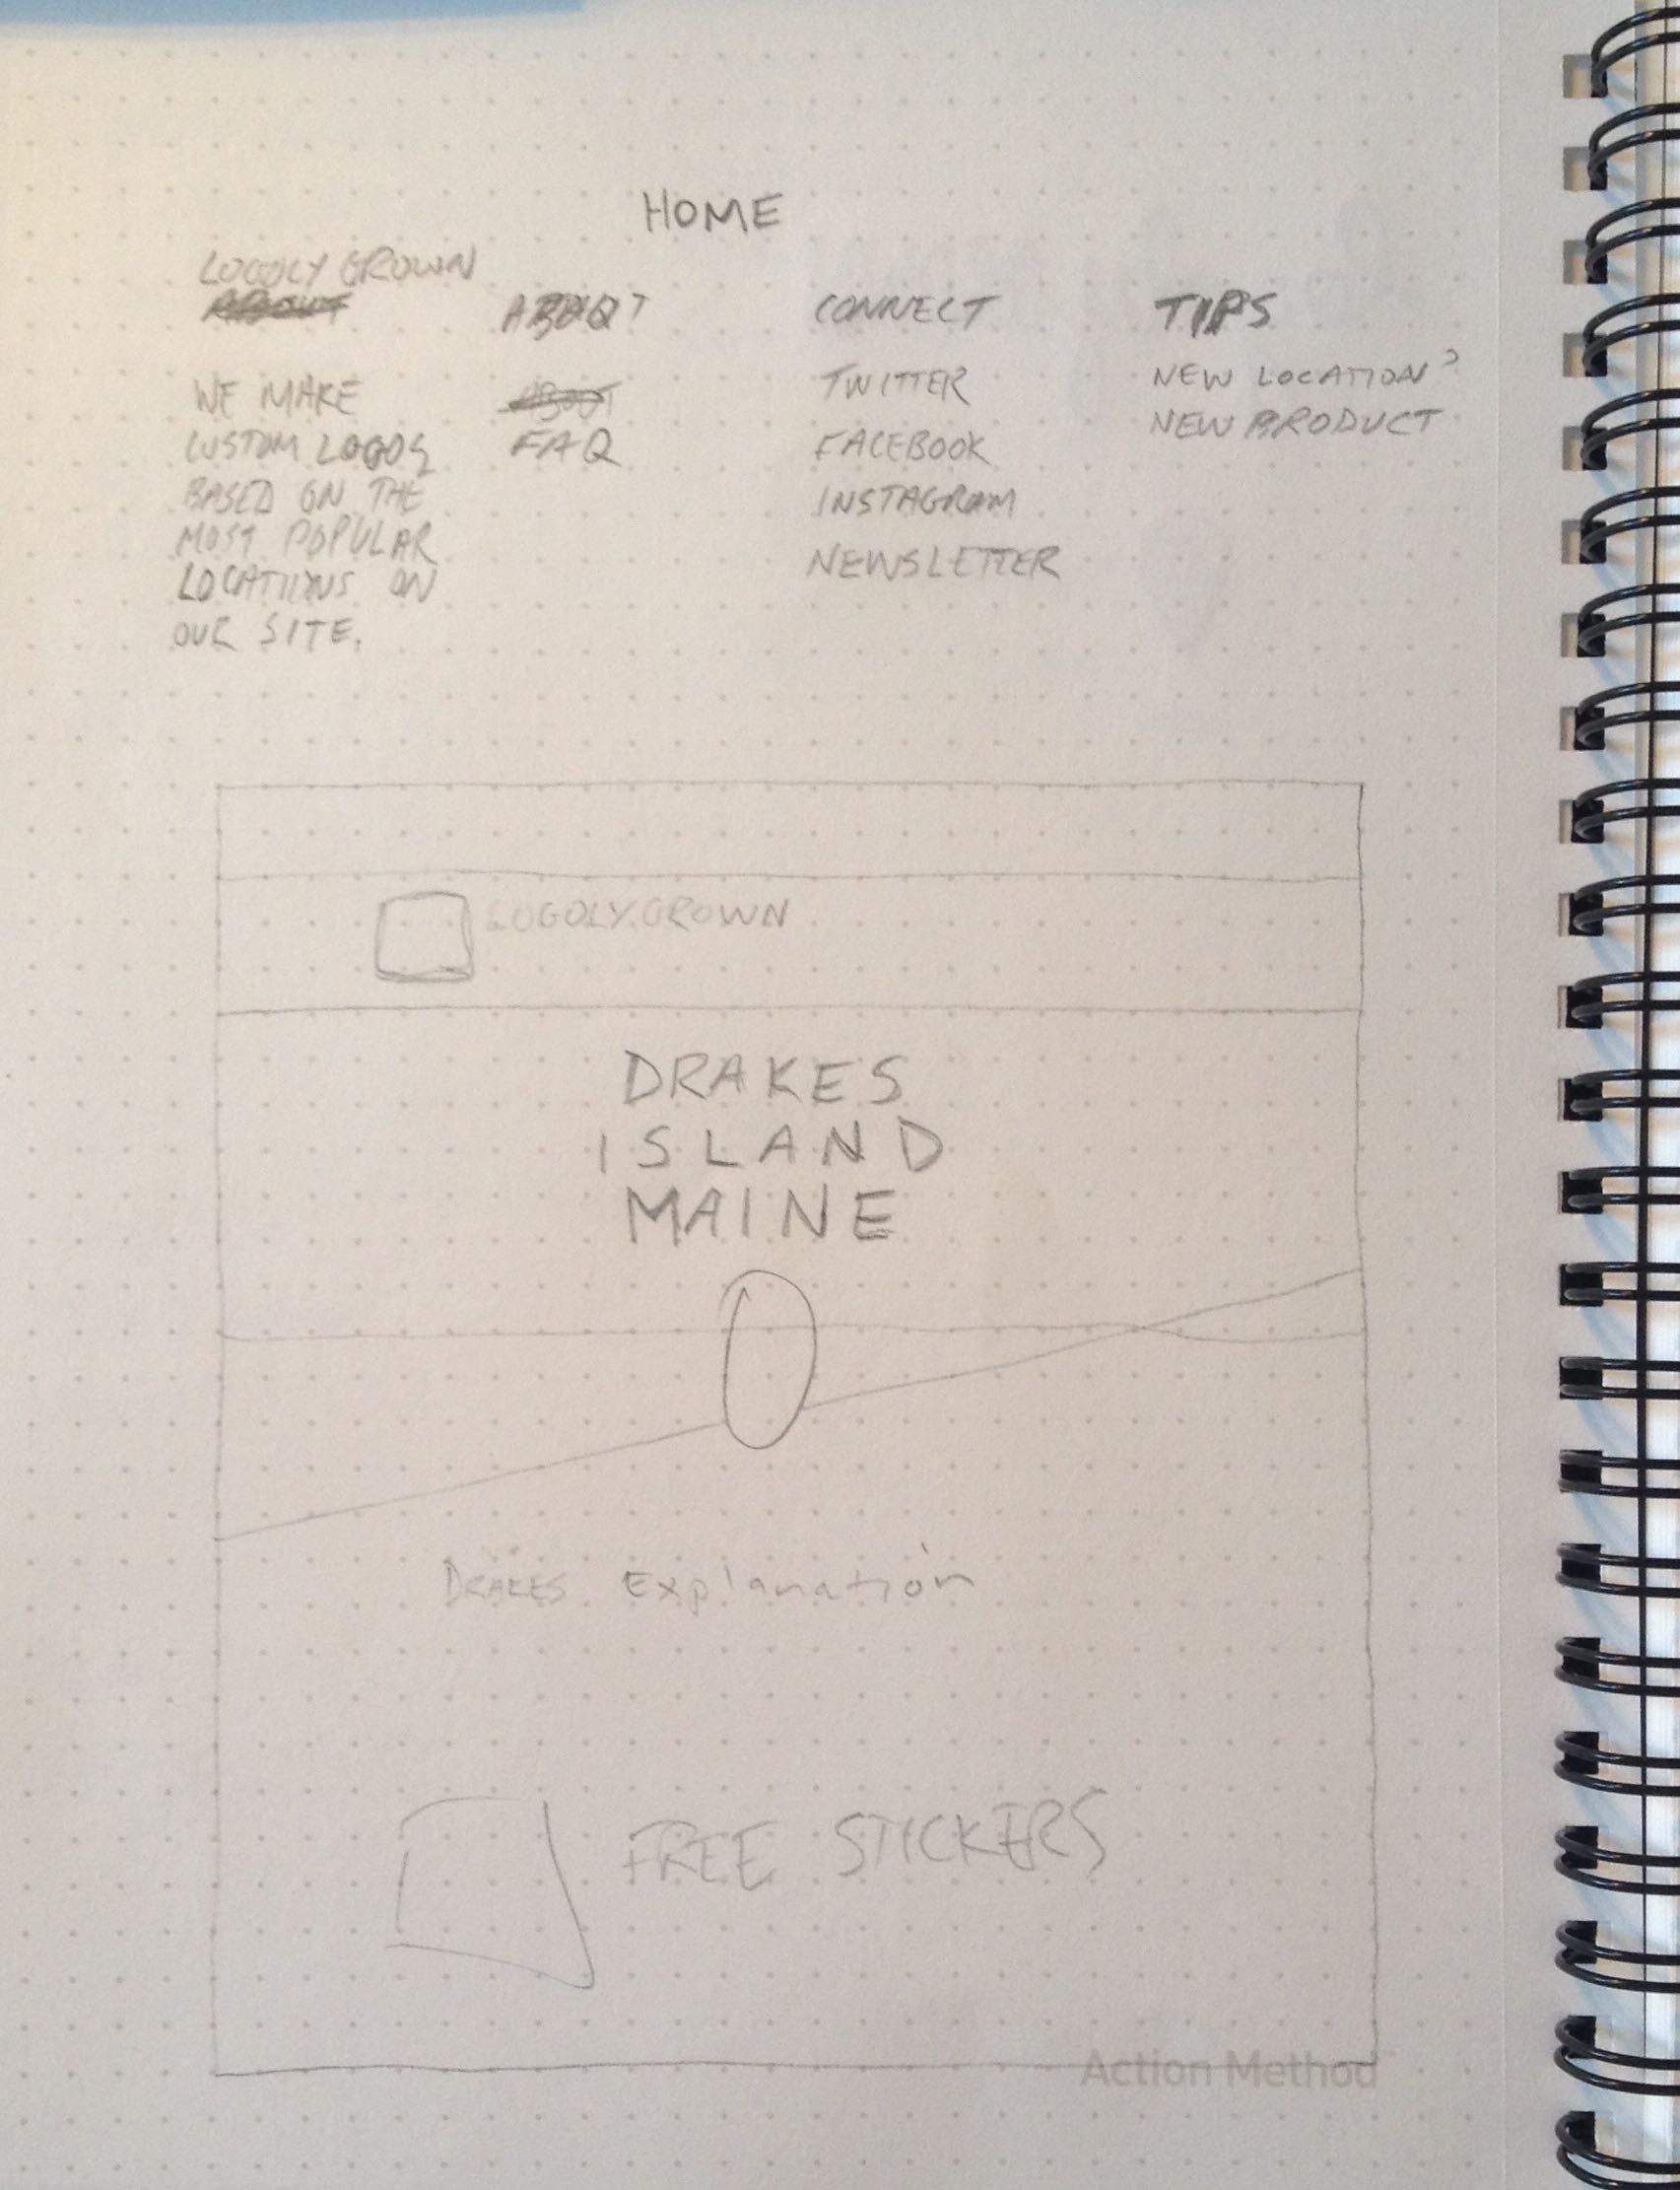 HOME
LOGOLY GROWN
ABOUT
WE MAKE
CUSTOM LOGOS
BASED ON THE
MOST POPULAR
LOCATIONS ON
OUR SITE.
ABOUT
FAQ
CONNECT
TWITTER
FACEBOOK
INSTAGRAM
NEWSLETTER
TIPS
NEW LOCATION?
NEW PRODUCT
LOGOLY.GROWN
DRAKES
ISLAND
MAINE
DRAKES Explanation
FREE STICKERS
Action Method